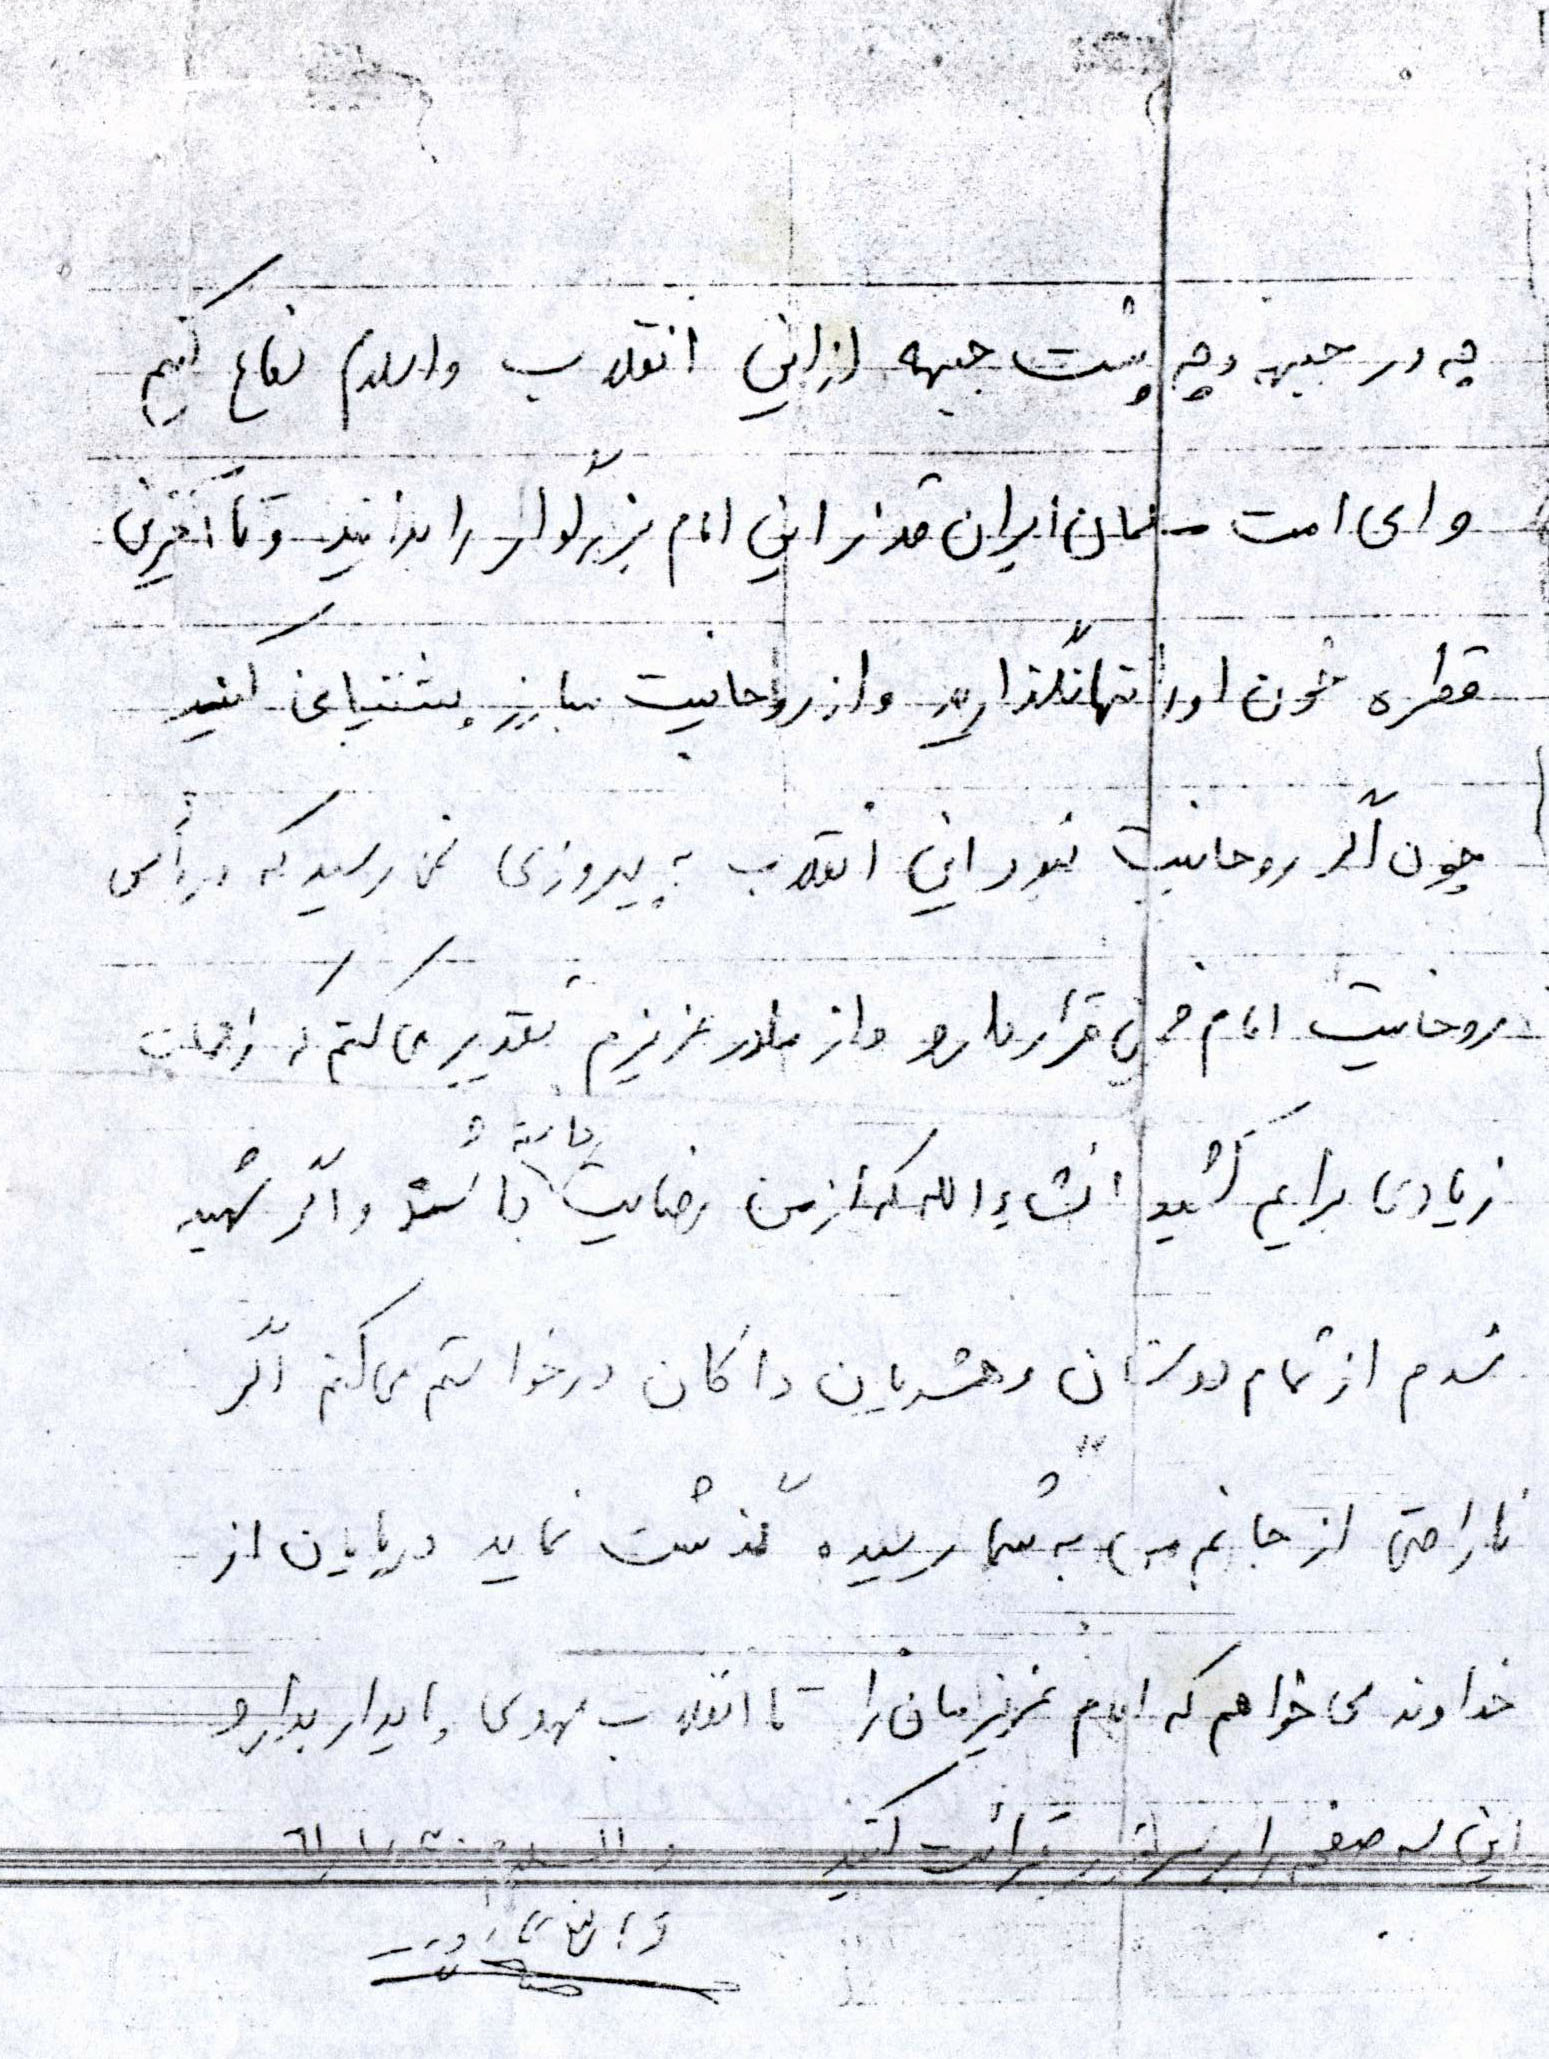 چه در جبهه و چه پشت جبهه از این انقلاب و اسلام دفاع کنیم
و ای امت مسلمان ایران قدر این امام بزرگوار را بدانید و تا آخرین
قطره خون او را تنها نگذارید و از روحانیت مبارز پشتیبانی کنید
چون اگر روحانیت نبود این انقلاب به پیروزی نمی رسید که در رأس
روحانیت امام خمینی قرار دارد و از مادر عزیزم تقدیر می کنم که زحمات
زیادی برایم کشید انشاءالله که از من رضایت داشته باشد و اگر شهید
شدم از تمام دوستان و همشهریان درخواستم می کنم اگر
ناراحتی از جانبم به شما رسیده گذشت نماید در پایان از
خداوند می خواهم که امام عزیزمان را تا انقلاب مهدی پایدار بدارد
این سه صفحه را بر سر قرائت کنید والسلام